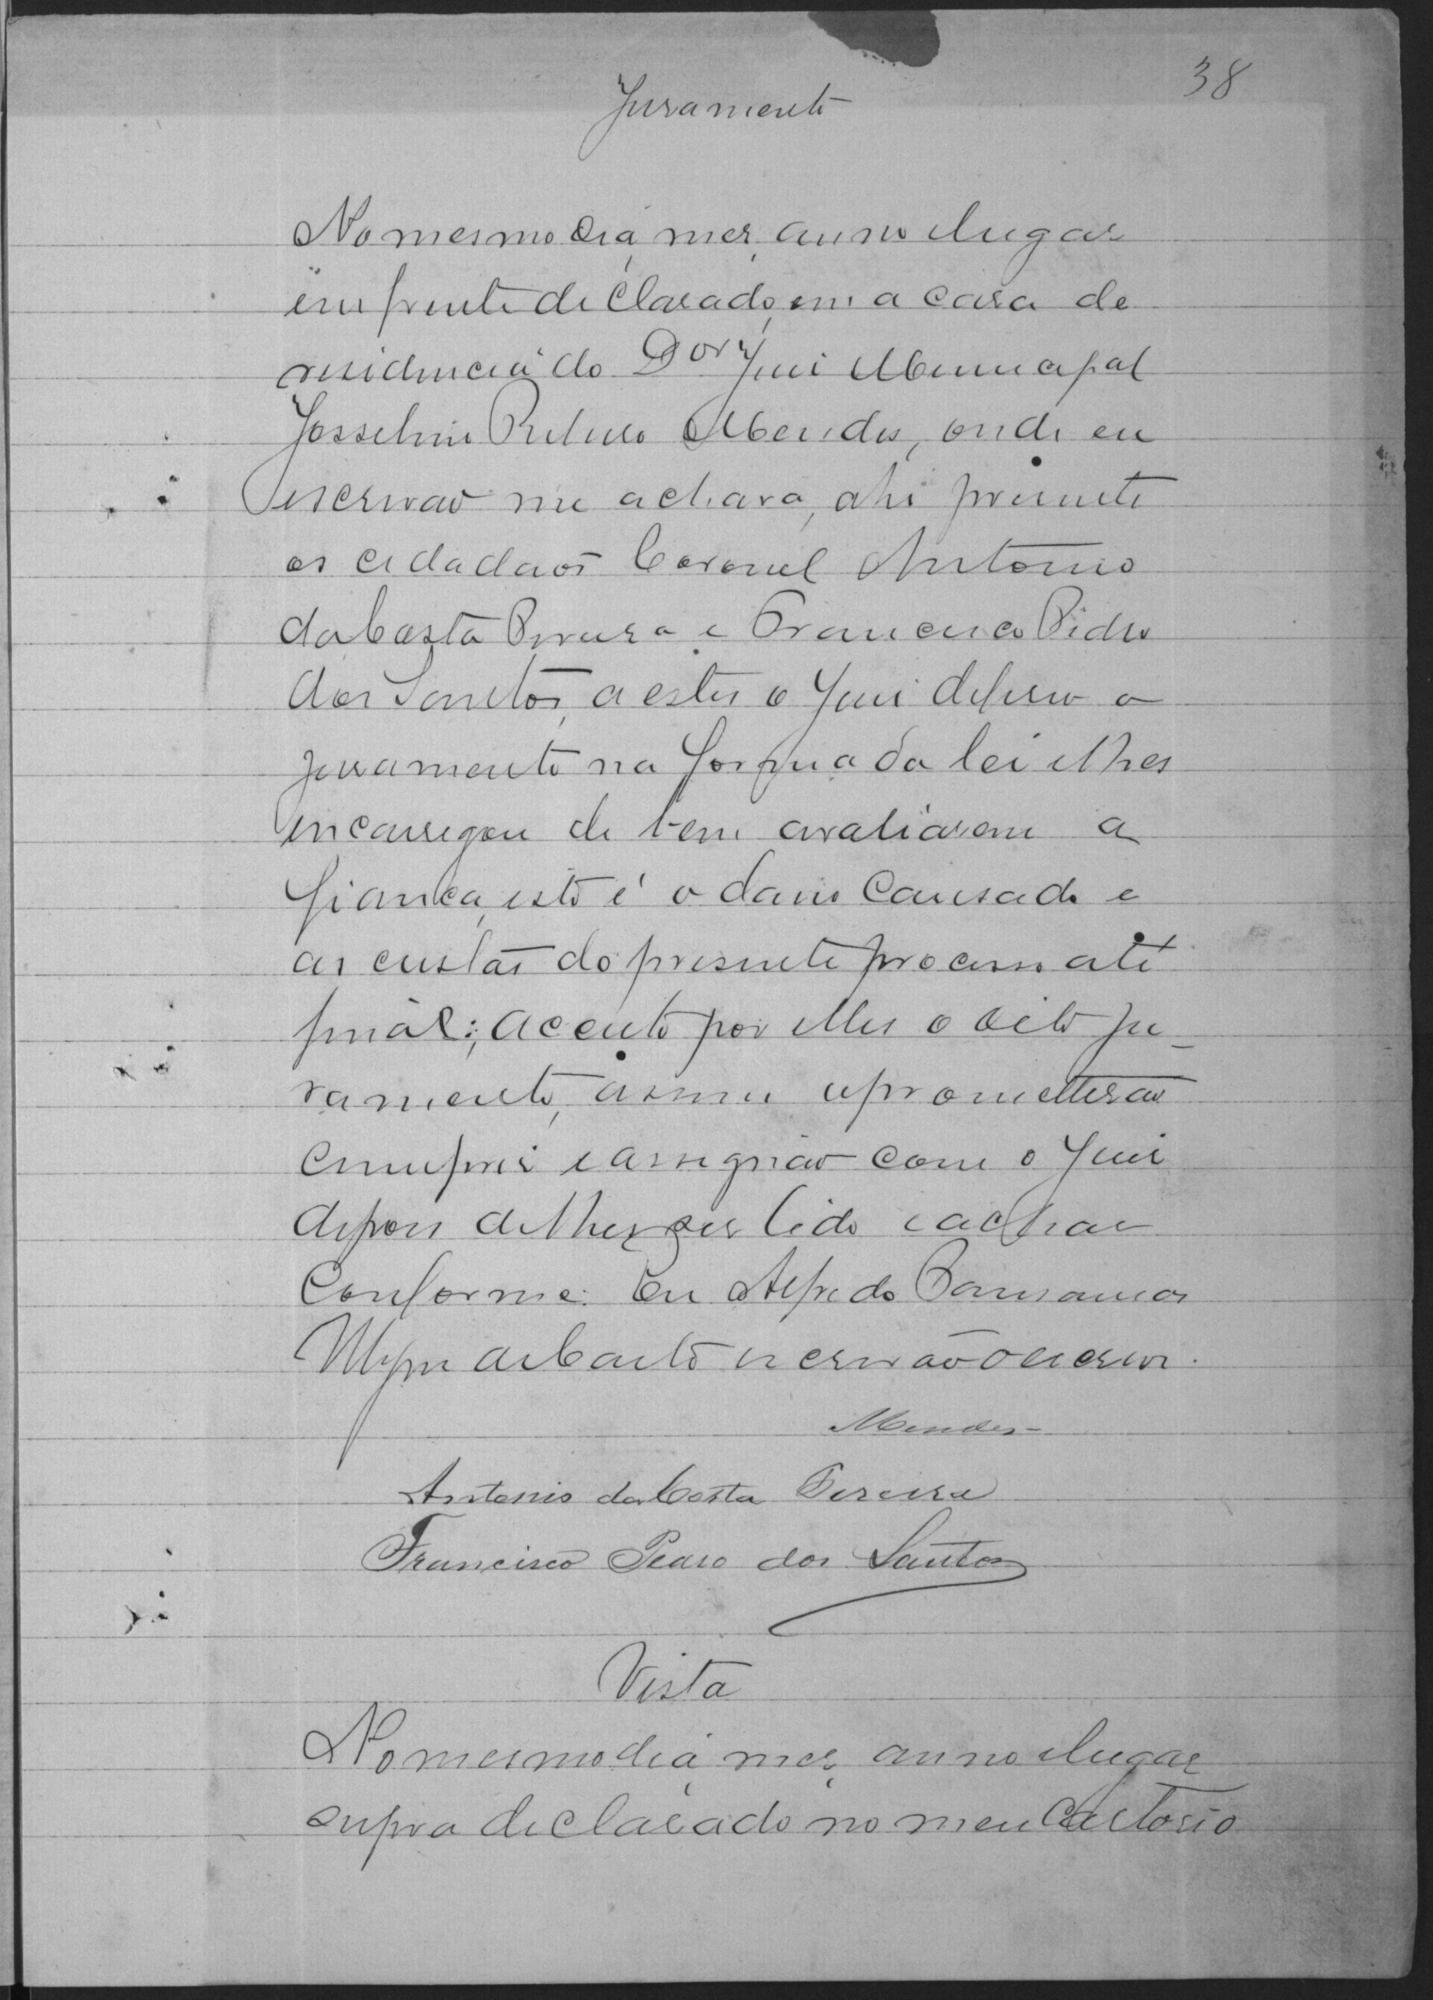 38
Juramento
No mesmo dia, mes, anno e lugar
em frente declarado, em a casa de
residencia do Dor Juis Municipal
Josselino Mendes, onde eu
escrivão me achava, ahi presente
os cidadaos Coronel Antonio
da Costa Pereira e Francisco Pedro
dos Santos, a estes o Juis deferio o
juramento na forma da lei e lhes
encarregou de bem avaliarem a
fiança, isto é o dano causado e
as custas do presente processo até
final; aceito por elles o dito ju-
ramento, assim o prometterão
cumprir e assignão com o Juis
depois de lhes ser lido e achar
conforme. Eu Alfredo
de Couto escrivão o escrevi.
Mendes
Antonio da Costa Pereira
Francisco Pedro dos Santos
Vista
No mesmo dia, mes, anno e lugar
supra declarado no meu Cartorio